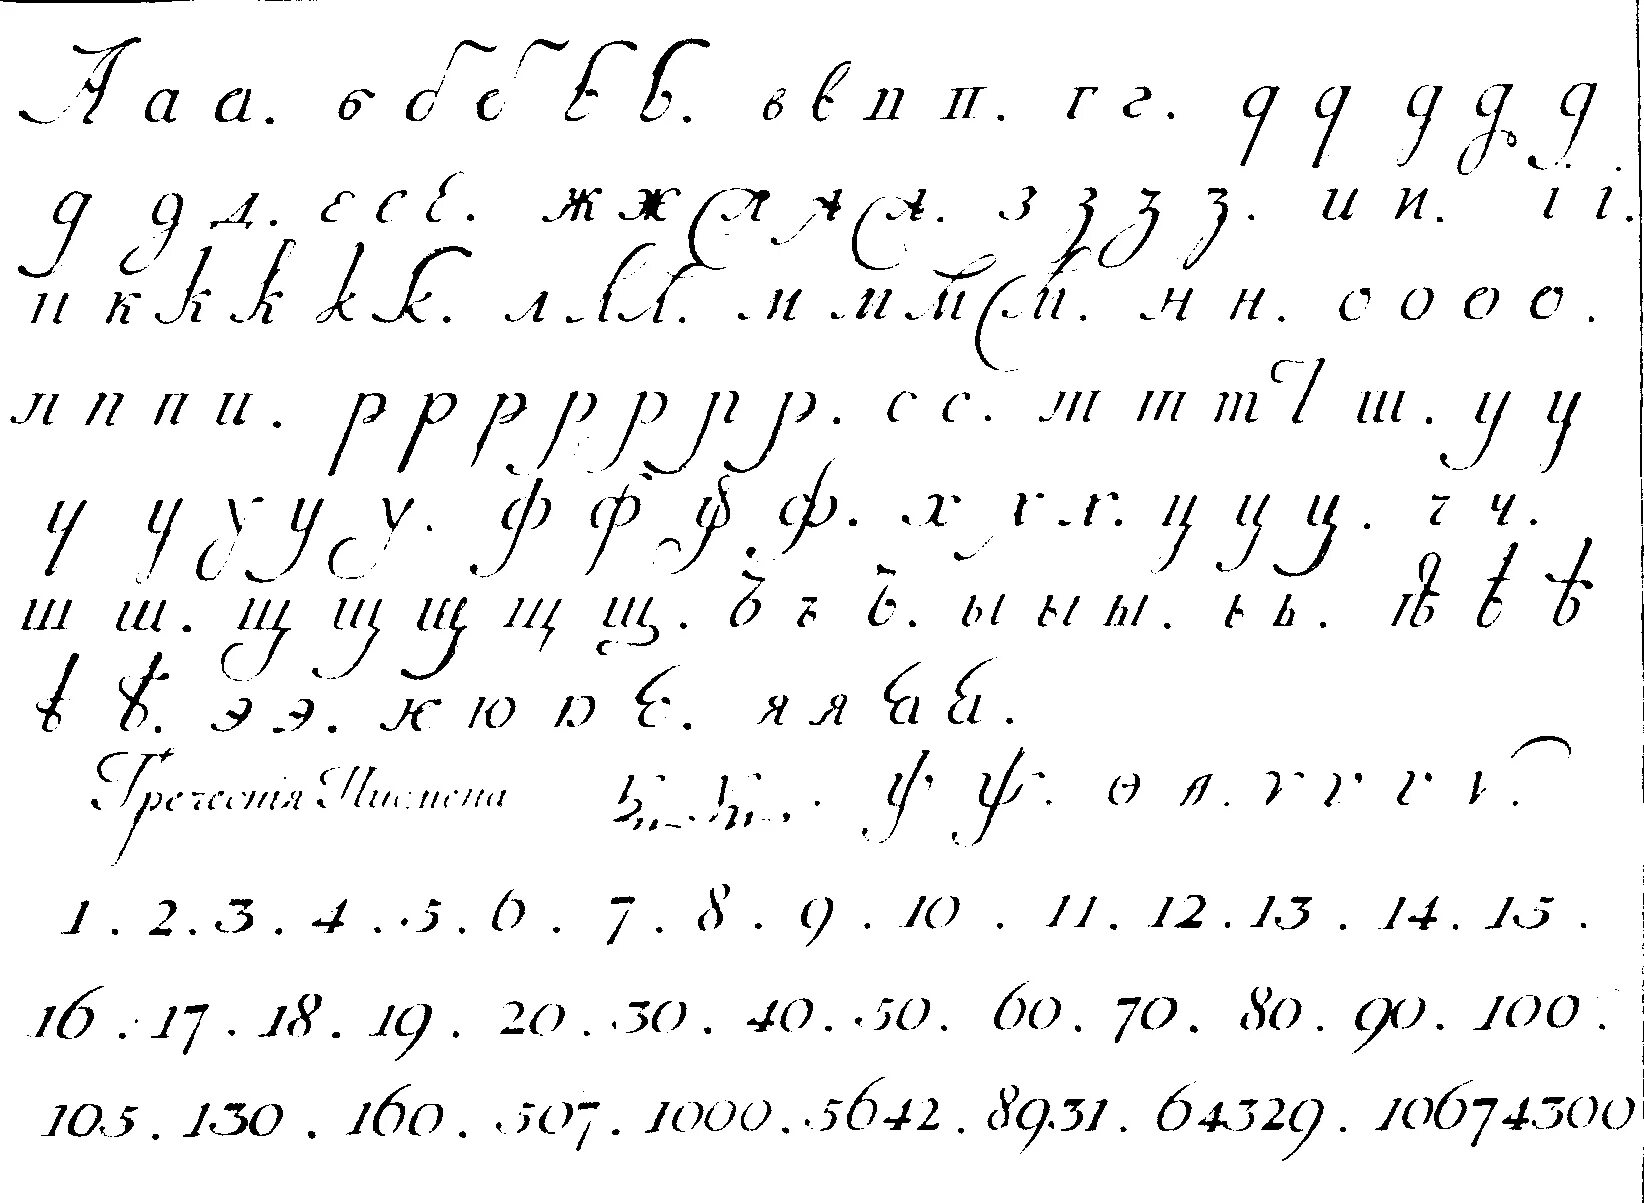 А а а. б б б б б. в в п п. г г. д д д д д
д д д. е е е. ж ж я я я. з з з з. и и. і і.
и к к к к к. л л л. м м м м. н н. о о о о.
п п п п. р р р р р р р. с с. т т т т ш. у у
у у у у у. ф ф ф ф. х х х. ц ц ц. ч ч.
ш ш. щ щ щ щ щ. ъ ъ ъ. ы ы ы. ь ь. ѣ ѣ ѣ
ѣ ѣ. э э. ю ю ю ю. я я я я.
Греческія Писмена ѱ ѱ. ѳ ѳ. ѵ ѵ ѵ ѵ.
1. 2. 3. 4. 5. 6. 7. 8. 9. 10. 11. 12. 13. 14. 15.
16. 17. 18. 19. 20. 30. 40. 50. 60. 70. 80. 90. 100.
105. 130. 160. 507. 1000. 5642. 8931. 64329. 10674300